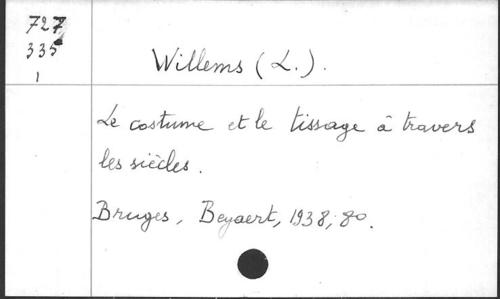 727
335
1
Willems (L.).
Le costume et le tissage à travers
les siècles.
Bruges, Beyaert, 1938, 8o.